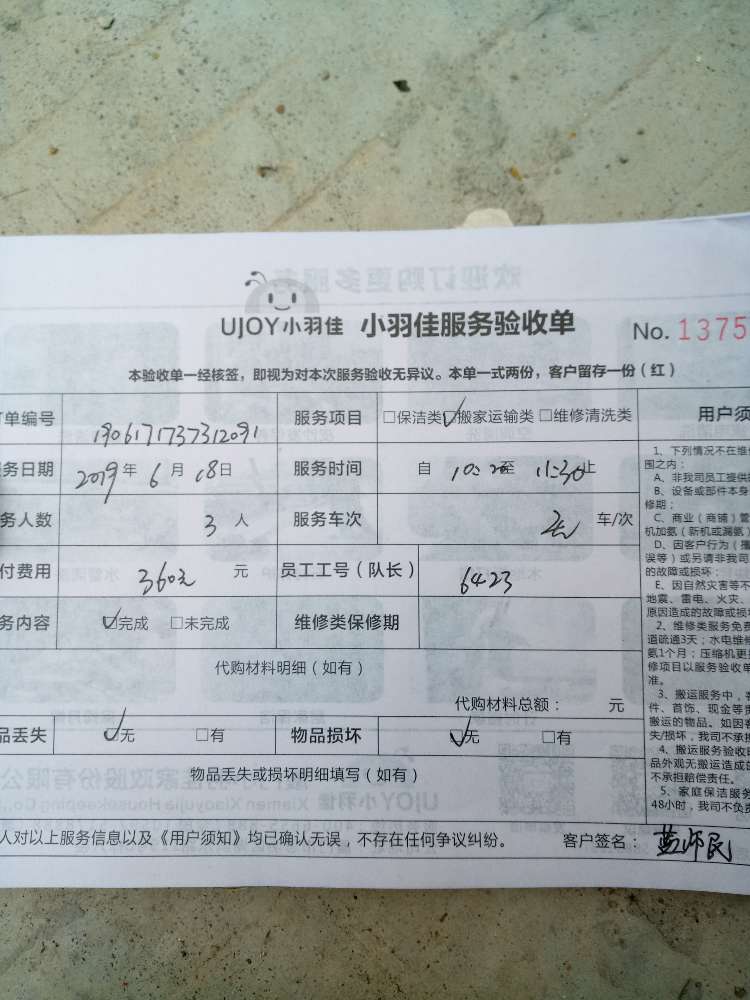 UJOY小羽佳 小羽佳服务验收单 No. 1375
本验收单一经核签，即视为对本次服务验收无异议。本单一式两份，客户留存一份（红）
单编号 1906171737312091 服务项目 □保洁类 ☑搬家运输类 □维修清洗类 用户须
务日期 2019年 6月 18日 服务时间 自 至 11:30止
务人数 3人 服务车次 车/次
付费用 360元 元 员工工号（队长） 6423
务内容 ☑完成 □未完成 维修类保修期
代购材料明细（如有）
代购材料总额： 元
品丢失 ☑无 □有 物品损坏 ☑无 □有
物品丢失或损坏明细填写（如有）
人对以上服务信息以及《用户须知》均已确认无误，不存在任何争议纠纷。 客户签名：
1、下列情况不在维
围之内：
A、非我司员工提供
B、设备或部件本身
修期；
C、商业（商铺）管
机加氨（新机或漏氨）
D、因客户行为（擅
误等）或另请非我司
的故障或损坏；
E、因自然灾害等不
地震、雷电、火灾、
原因造成的故障或损
2、维修类服务免费
道疏通3天；水电维
氨1个月；压缩机更
修项目以服务验收单
准。
3、搬运服务中，
件、首饰、现金等贵
搬运的物品。如因客
失/损坏，我司不承担
4、搬运服务验收
品外观无搬运造成的
不承担赔偿责任。
5、家庭保洁服务
48小时，我司不负责